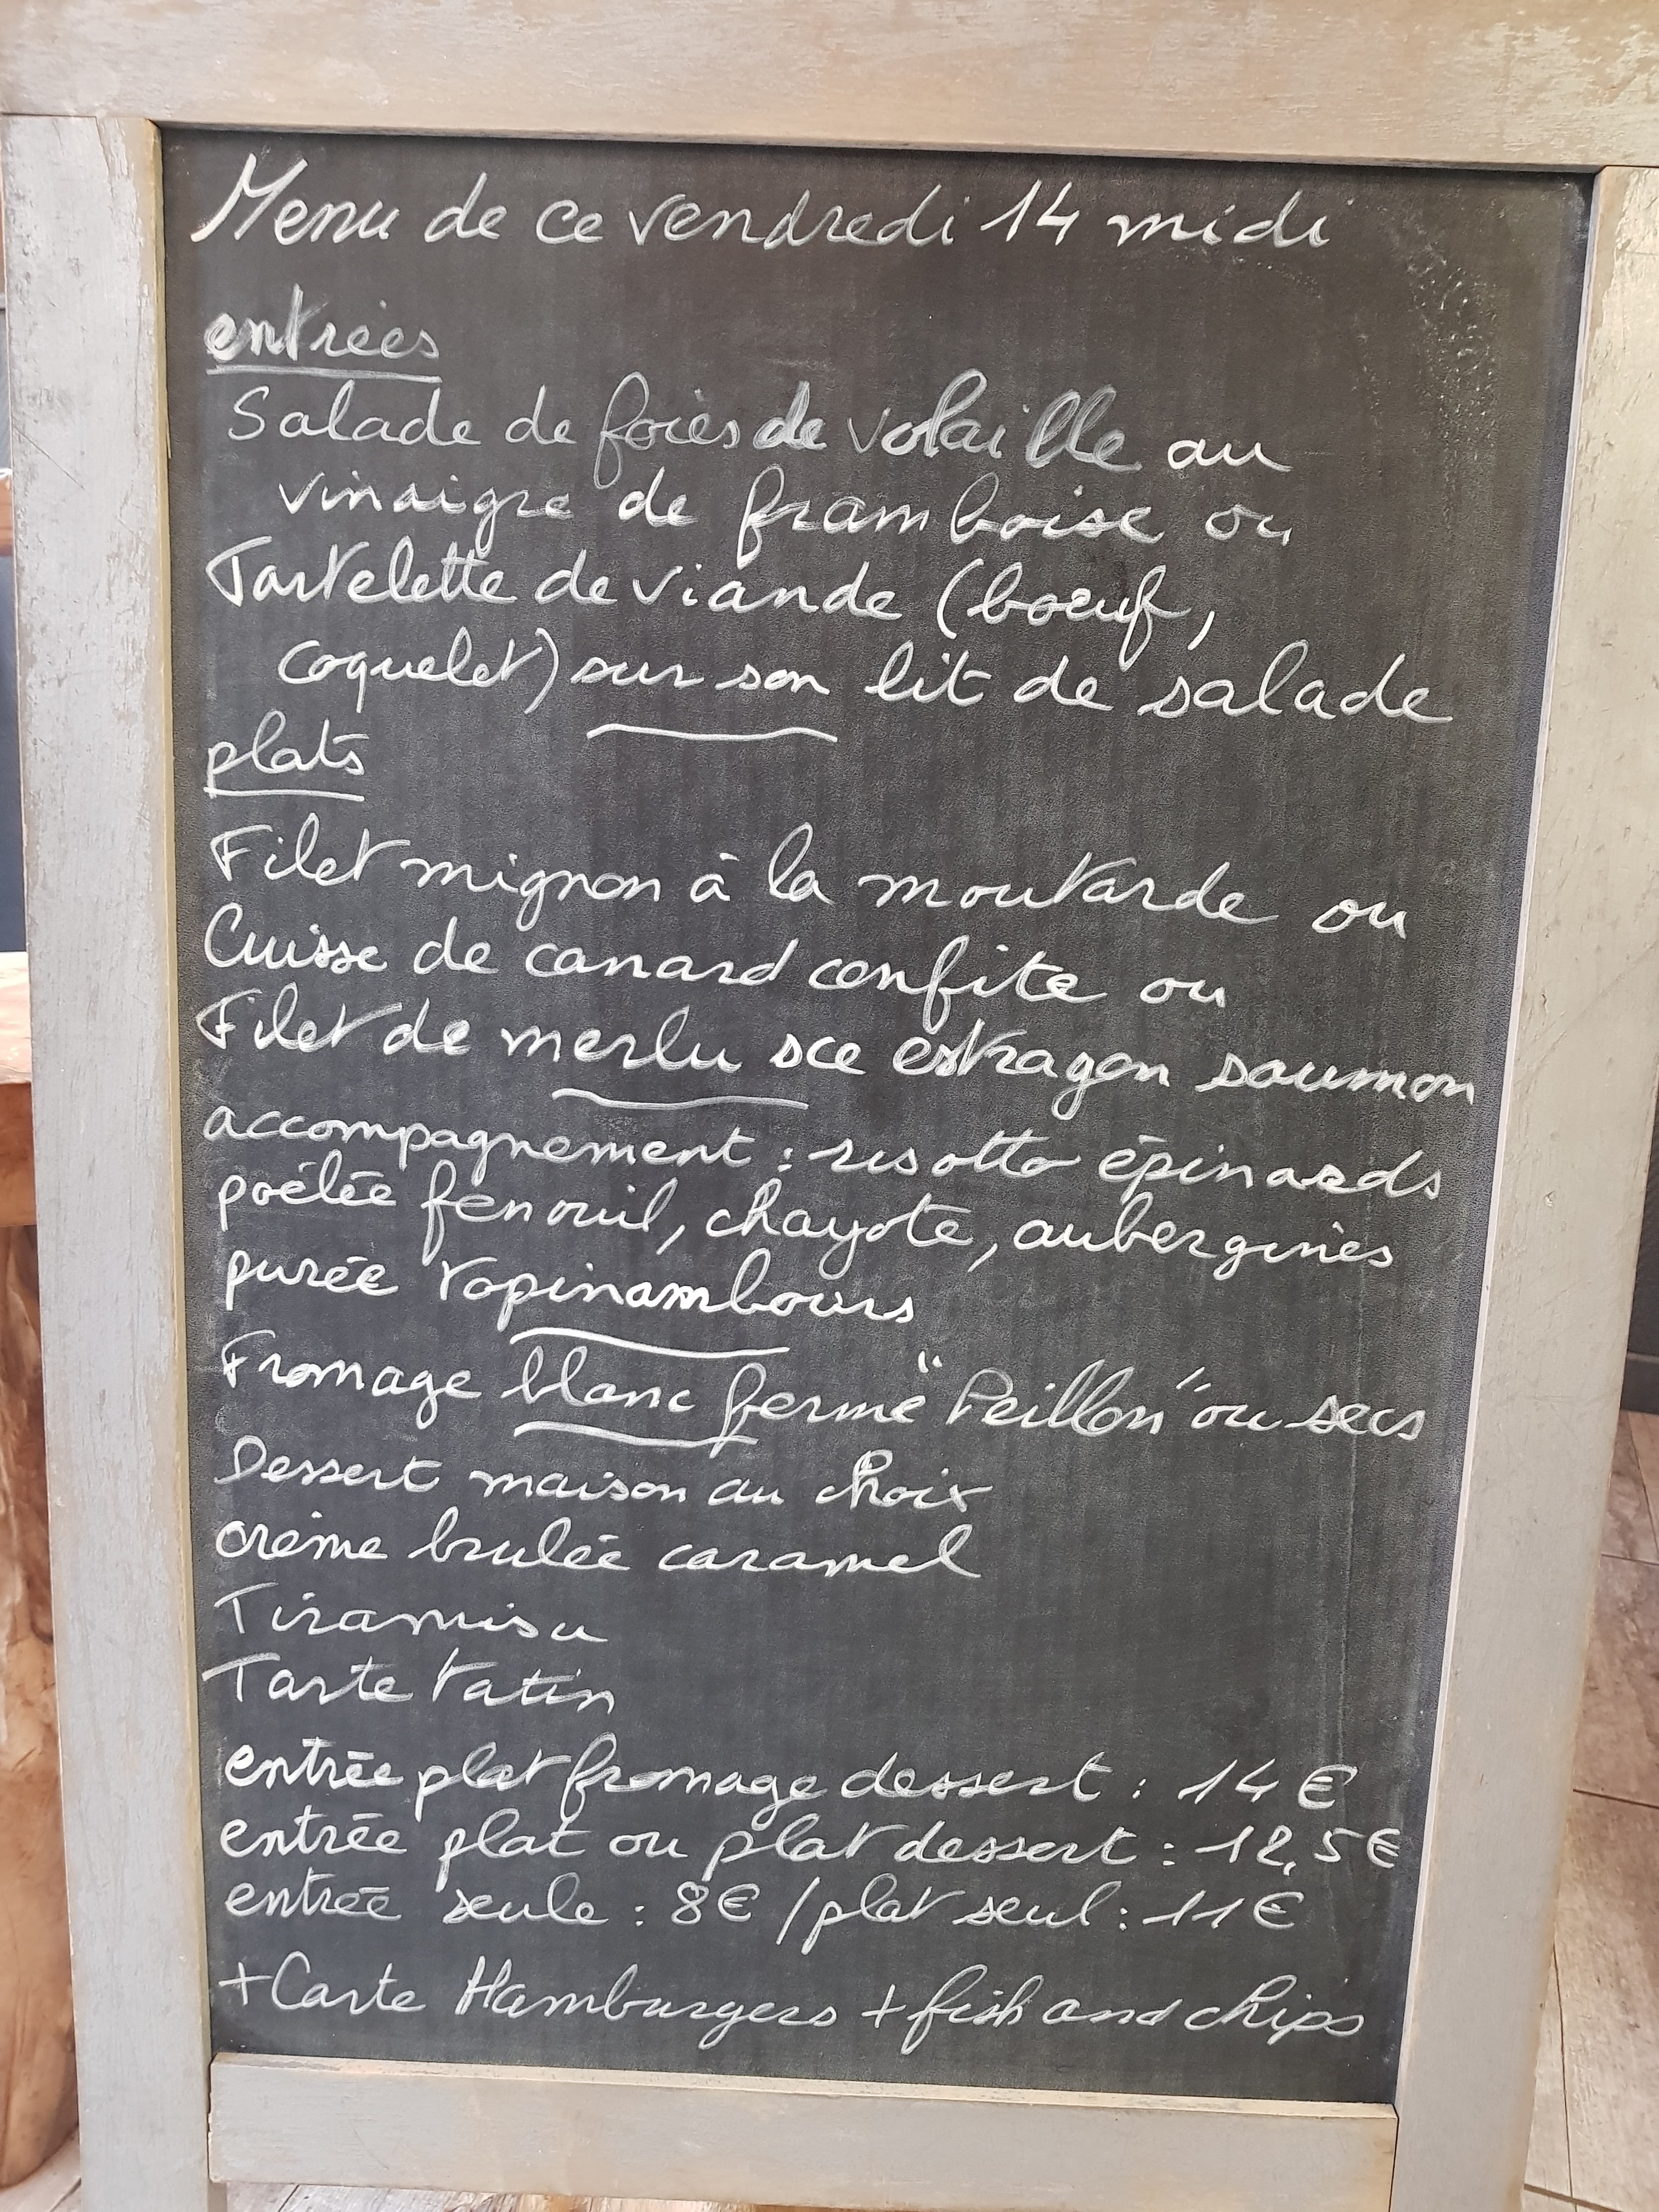 Menu de ce vendredi 14 midi
entrées
Salade de foies de volaille au
vinaigre de framboise ou
Tartelette de viande (boeuf,
coquelet) sur son lit de salade
plats
Filet mignon à la moutarde ou
Cuisse de canard confite ou
Filet de merlu sce estragon saumon
accompagnement : risotto épinards
poêlée fenouil, chayote, aubergines
purée topinambours
Fromage blanc ferme "Peillon" ou secs
Dessert maison au choix
crème brulée caramel
Tiramisu
Tarte tatin
entrée plat fromage dessert : 14 €
entrée plat ou plat dessert : 12,5 €
entrée seule : 8 € / plat seul : 11 €
+ Carte Hamburgers + fish and chips